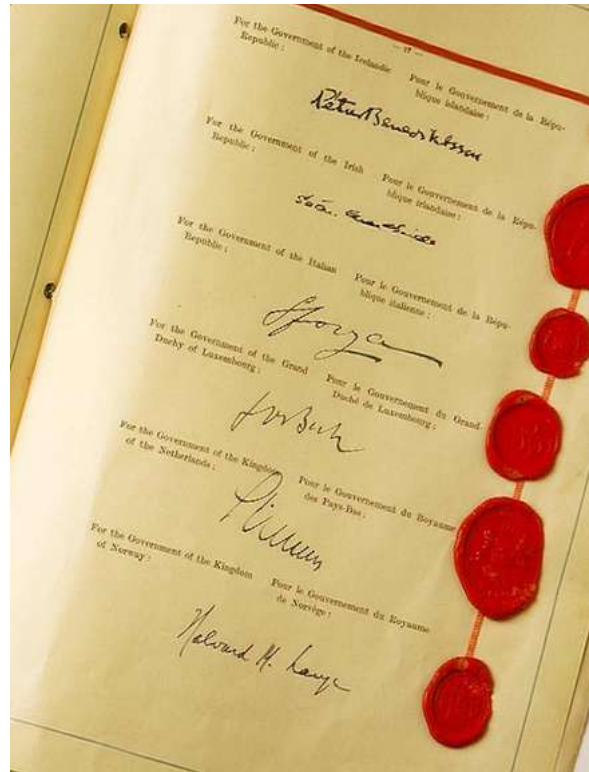 — 17 —
For the Government of the Icelandic
Republic :
Pour le Gouvernement de la Répu-
blique islandaise :
Pétur Benediktsson
For the Government of the Irish
Republic :
Pour le Gouvernement de la Répu-
blique irlandaise :
Seán MacBride
For the Government of the Italian
Republic :
Pour le Gouvernement de la Répu-
blique italienne :
Sforza
For the Government of the Grand
Duchy of Luxembourg :
Pour le Gouvernement du Grand-
Duché de Luxembourg :
Jos Bech
For the Government of the Kingdom
of the Netherlands :
Pour le Gouvernement du Royaume
des Pays-Bas :
For the Government of the Kingdom
of Norway :
Pour le Gouvernement du Royaume
de Norvège :
Halvard M. Lange